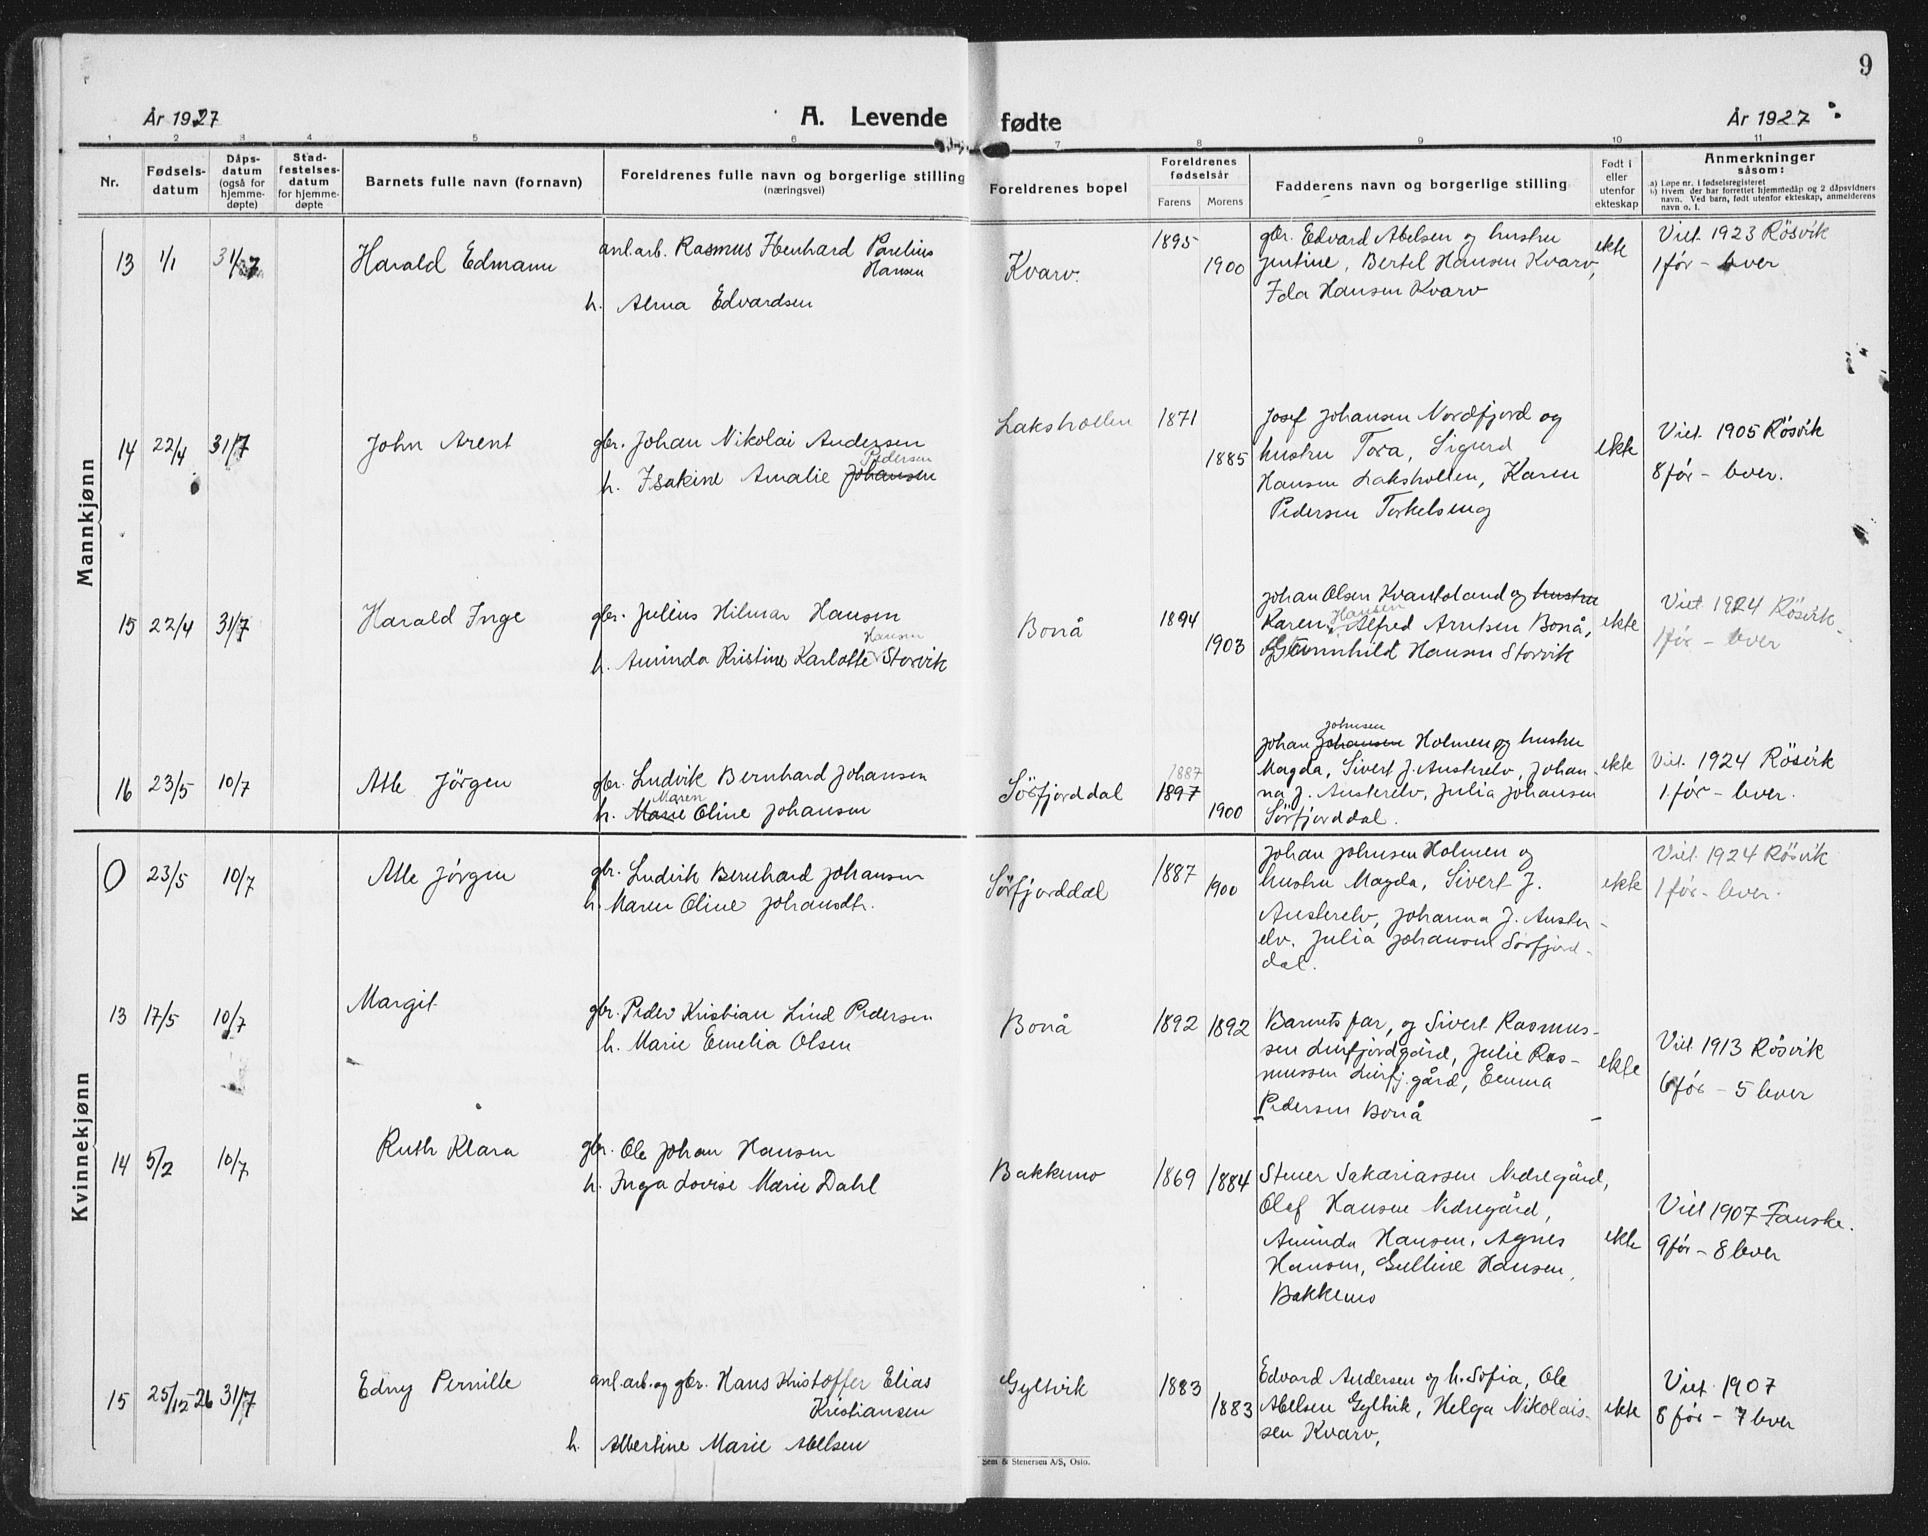 9
År 1927
A. Levende fødte
År 1927
1 2 3 4 5 6 7 8 9 10 11
Nr.
Fødsels-
datum
Dåps-
datum
(også for
hjemme-
døpte)
Stad-
festelses-
datum
for hjemme-
døpte
Barnets fulle navn (fornavn)
Foreldrenes fulle navn og borgerlige stilling
(næringsvei)
Foreldrenes bopel
Foreldrenes
fødselsår
Farens Morens
Fadderens navn og borgerlige stilling
Født i
eller
utenfor
ekteskap
Anmerkninger
såsom:
a) Løpe nr. i fødselsregisteret
b) Hvem der har forrettet hjemmedåp og 2 dåpsvidners
navn. Ved barn, født utenfor ekteskap, anmelderens
navn o. l.
Mannkjønn
13 1/1 31/7 Harald Edmann
anl.arb. Rasmus Ibenhard Parelius
Hansen
h. Alma Edvardsen
Kvarv. 1895 1900
gbr. Edvard Abelsen og hustru
Justine, Bertel Hansen Kvarv,
Ida Hansen Kvarv
ekte
Viet 1923 Røsvik
1 før - lever
14 22/4 31/7 John Arent
gbr. Johan Nikolai Andersen
Pedersen
h. Isakine Amalie Johansen
Laksholten 1871 1885
Josef Johansen Nordfjord og
hustru Tora, Sigurd
Hansen Laksholten, Karen
Pedersen Torkelseng
ekte
Viet 1905 Røsvik
8 før - lever.
15 22/4 31/7 Harald Inge
gbr. Julius Hilmar Hansen
Hansen
h. Aminda Kristine Karlotte Storvik
Bonå 1894 1903
Johan Olsen Kvantoland og hustru
Hansen
Karen, Alfred Arntsen Bonå,
Gunnhild Hansen Storvik
ekte
Viet 1924 Røsvik
1 før - lever
16 23/5 10/7 Atle Jörgen
gbr. Ludvik Bernhard Johansen
Maren
h. Marie Oline Johansen
Sörfjorddal 1887 1897 1900
Johnsen
Johan Johansen Holmen og hustru
Magda, Sivert J. Austerelv, Johan-
na J. Austerelv, Julia Johansen
Sörfjorddal.
ekte
Viet. 1924 Røsvik
1 før - lever.
Kvinnekjønn
0 23/5 10/7 Atle Jörgen
gbr. Ludvik Bernhard Johansen
h. Maren Oline Johansdtr.
Sörfjorddal 1887 1900
Johan Johnsen Holmen og
hustru Magda, Sivert J.
Austerelv, Johanna J. Auster-
elv. Julia Johansen Sörfjord-
dal.
ekte
Viet 1924 Røsvik
1 før - lever.
13 17/5 10/7 Margit
gbr. Peder Kristian Lind Pedersen
h. Marie Emelia Olsen
Bonå 1892 1892
Barnets far, og Sivert Rasmus-
sen Leirfjordgård, Julie Ras-
mussen Leirfj.gård, Emma
Pedersen Bonå
ekte
Viet 1913 Røsvik
6 før - 5 lever
14 5/2 10/7 Ruth Klara
gbr. Ole Johan Hansen
h. Inga Lovise Marie Dahl
Bakkemo 1869 1884
Stener Sakariassen Nedregård,
Olaf Hansen Nedregård,
Aminda Hansen, Agnes
Hansen, Gulline Hansen,
Bakkemo
ekte
Viet 1907 Fauske.
9 før - 8 lever
15 25/12-26 31/7 Edny Pernille
anl.arb. og gbr. Hans Kristoffer Elias
Kristiansen
h. Albertine Marie Abelsen
Gyltvik 1883 1883
Edvard Andersen og h. Sofia, Ole
Abelsen Gyltvik, Helga Nikolais-
sen Kvarv,
ekte
Viet 1907
8 før - 7 lever
Sem & Stenersen A/S, Oslo.